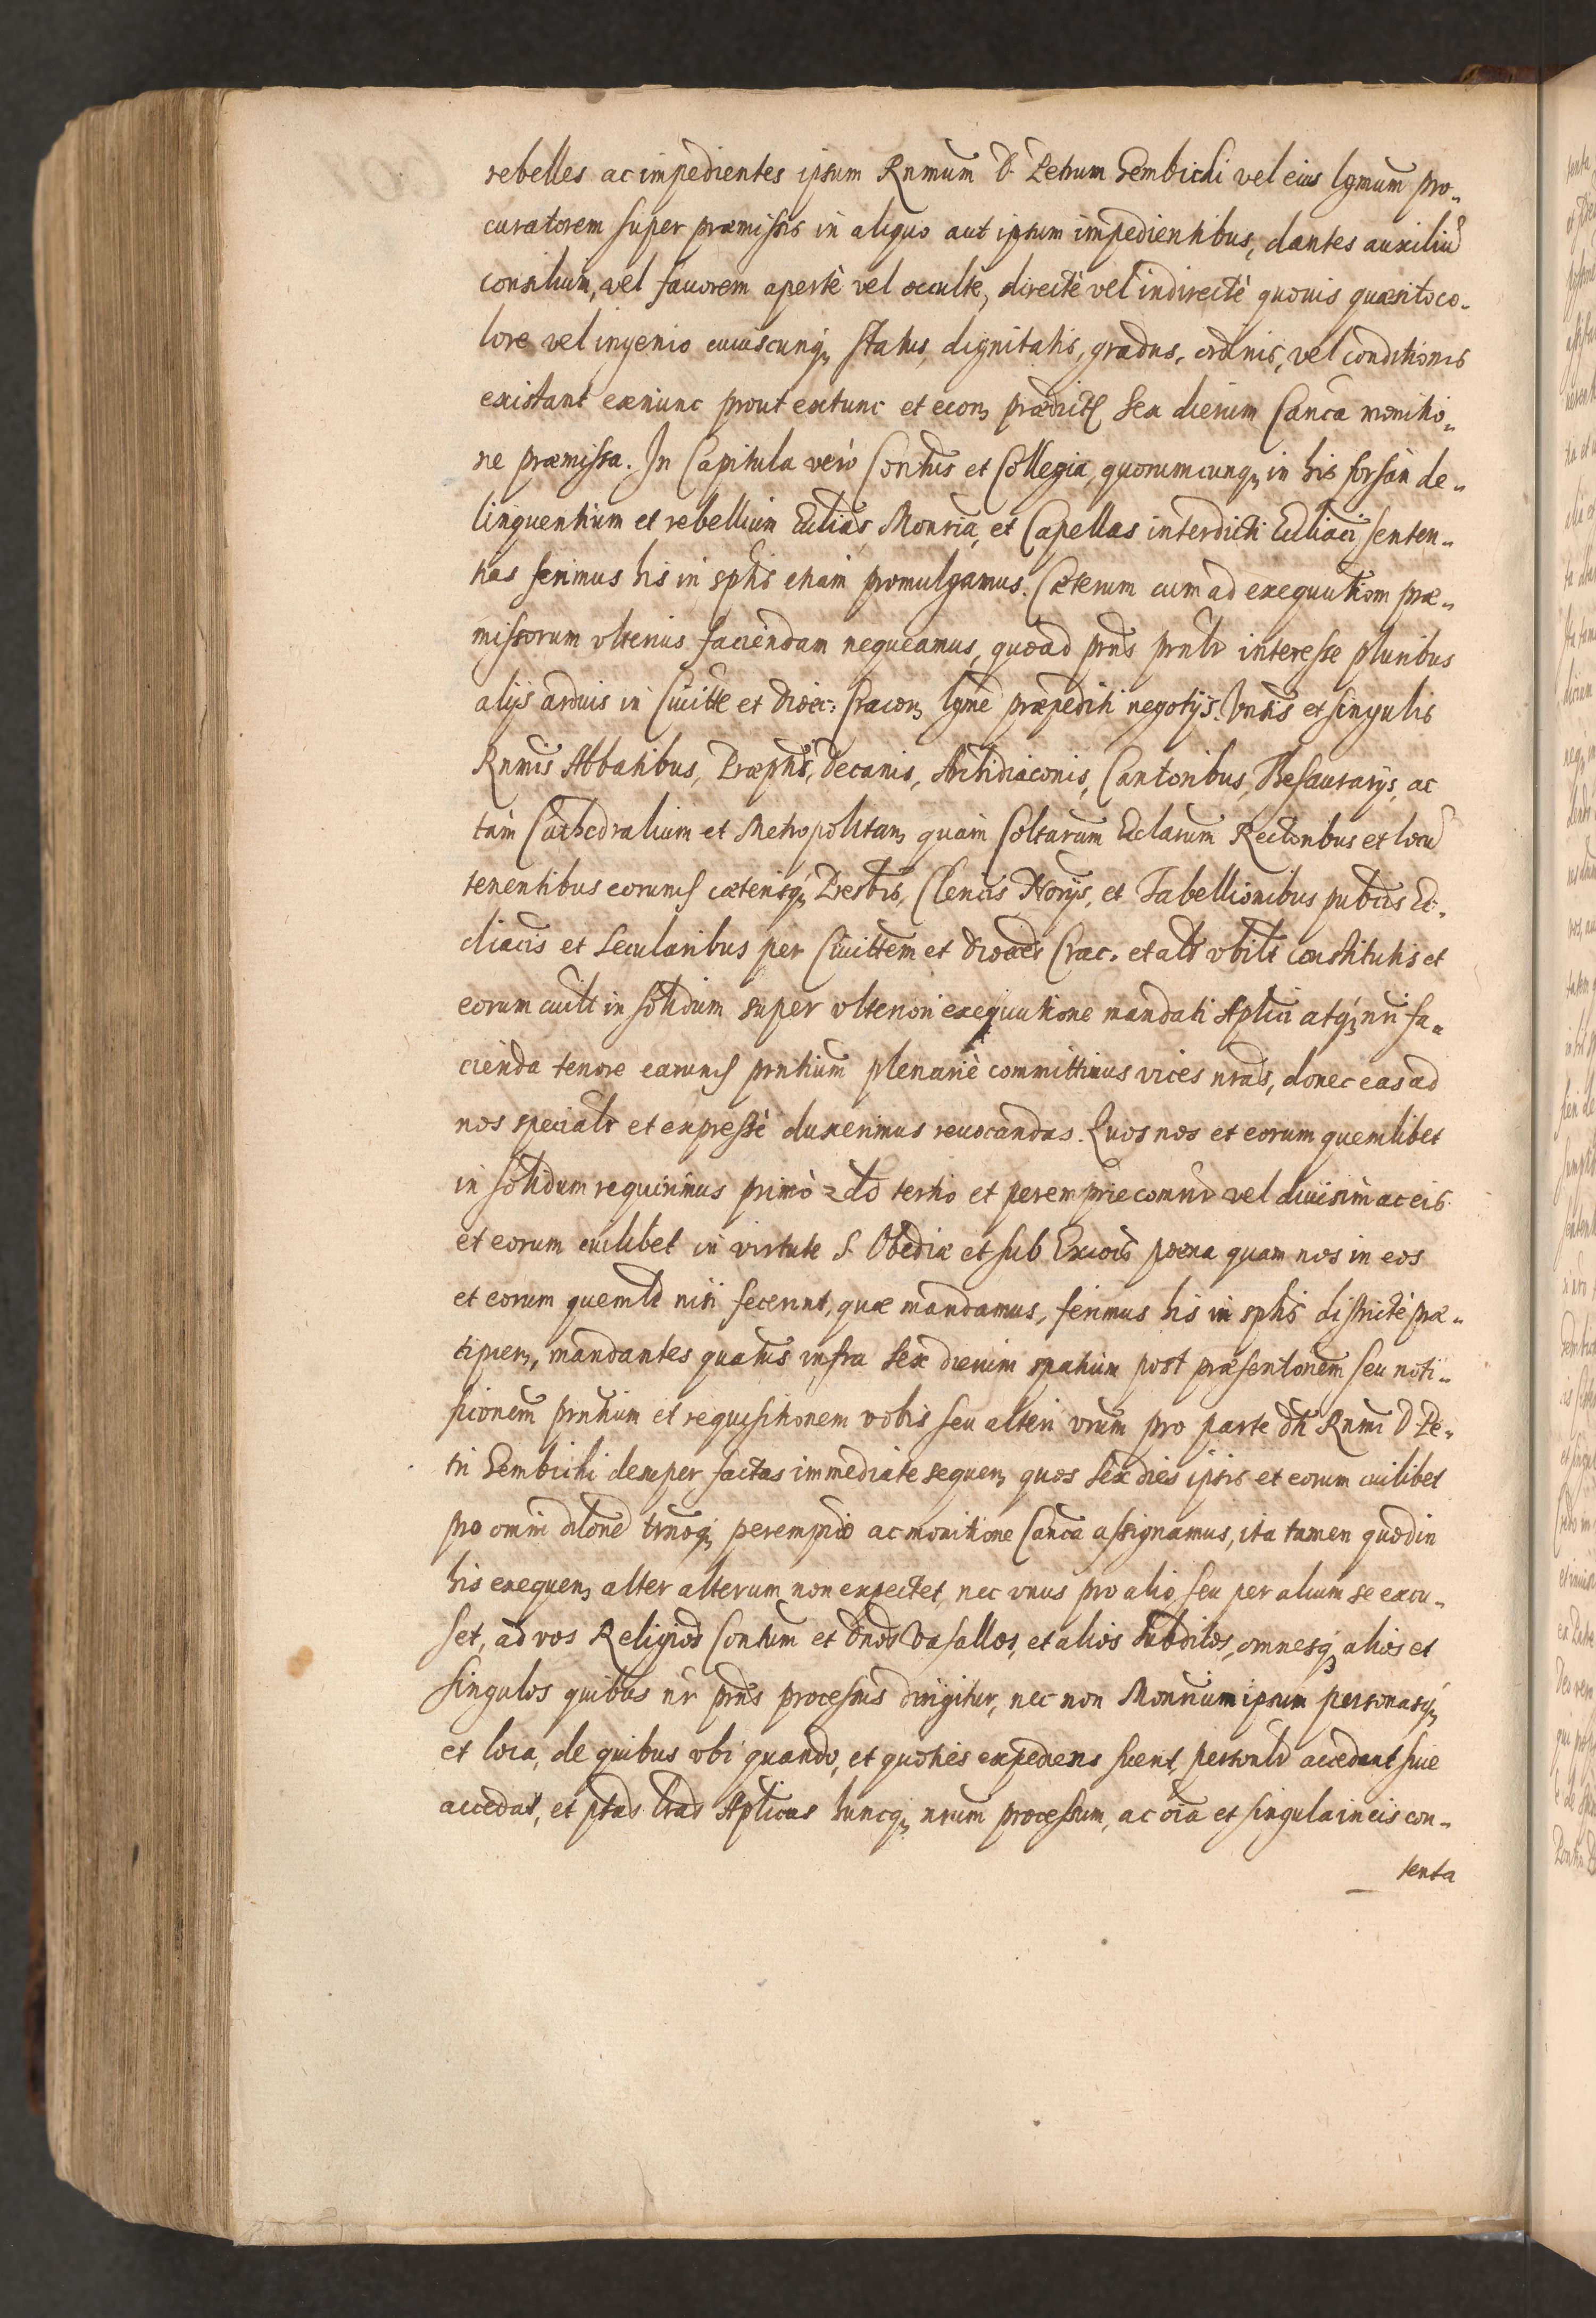 rebelles ac impedientes ipsum Rnmum D. Petrum Gembicki vel eius lgmum pro-
curatorem super præmissis in aliquo aut ipsum impedientibus, dantes auxiliũ
consilium, vel fauorem apertè vel occultè, directè vel indirectè quouis quæsito co-
lore vel ingenio cuiuscunq, status, dignitatis, gradus, ordinis, vel conditionis
existant exnunc prout extunc et econ, prædict sex dierum Canca monitio-
ne præmissa. In Capitula verò Contus et Collegia, quorumcunq, in his forsàn de-
linquentium et rebellium Ecclias Monria, et Capellas interdicti Eccliaci senten-
tias ferimus his in sptis etiam promulgamus. Cæterum cum ad exequutiom præ-
missorum vlterius faciendam nequeamus, quoad prns prnlr interesse pluribus
alijs arduis in Ciuitte et Diœc: Cracon, lgmè præpediti negotijs. Vnsis et singulis
Rnmis Abbatibus, Præptis, Decanis, Archidiaconis, Cantoribus, Thesaurarijs, ac
tàm Cathedralium et Metropolitan, quàm Coltarum Ecclarum Rectoribus et locũ
tenentibus eorumd cæterisq, Presbis, Clericis Norijs, et Tabellionibus pubcis Ec-
cliacis et Secularibus per Ciuittem et Diœces Crac. et alr vbilt constitutis et
eorum cuilt in solidum super vlteriori exequutione mandati Aplici atq, nri fa-
cienda tenore earumd prntium plenariè committimus vices nras, donec eas ad
nos specialr et expressè duxerimus reuocandas. Quos nos et eorum quemlibet
in solidum requirimus primò 2do tertio et peremprie comnr vel diuisim ac eis
et eorum cuilibet in virtute S. Obediæ et sub Excois pœna quam nos in eos
et eorum quemlt nisi fecerint, quæ mandamus, ferimus his in sptis districtè præ-
cipien, mandantes quatus infra sex dierum spatium post præsentonem seu noti-
ficionem prntium et requisitionem vobis seu alteri vrum pro parte dti Rnmi D. Pe-
tri Gembicki desuper factas immediate sequen, quos sex dies ipsis et eorum cuilibet
pro omni dilone trnoq, perempio ac monitione Canca assignamus, ita tamen quod in
his exequen, alter alterum non expectet, nec vnus pro alio, seu per alium se excu-
set, ad vos Religios Contum et Dnos Vasallos, et alios subditos, omnesq, alios et
singulos quibus nr prns processus dirigitur, nec non Monrium ipsum personasq,
et loca, de quibus vbi quando, et quoties expediens fuerit, personlr accedant siue
accedat, et ptas lras Aplicas huncq, nrum processum, ac oia et singula in eis con-
tenta